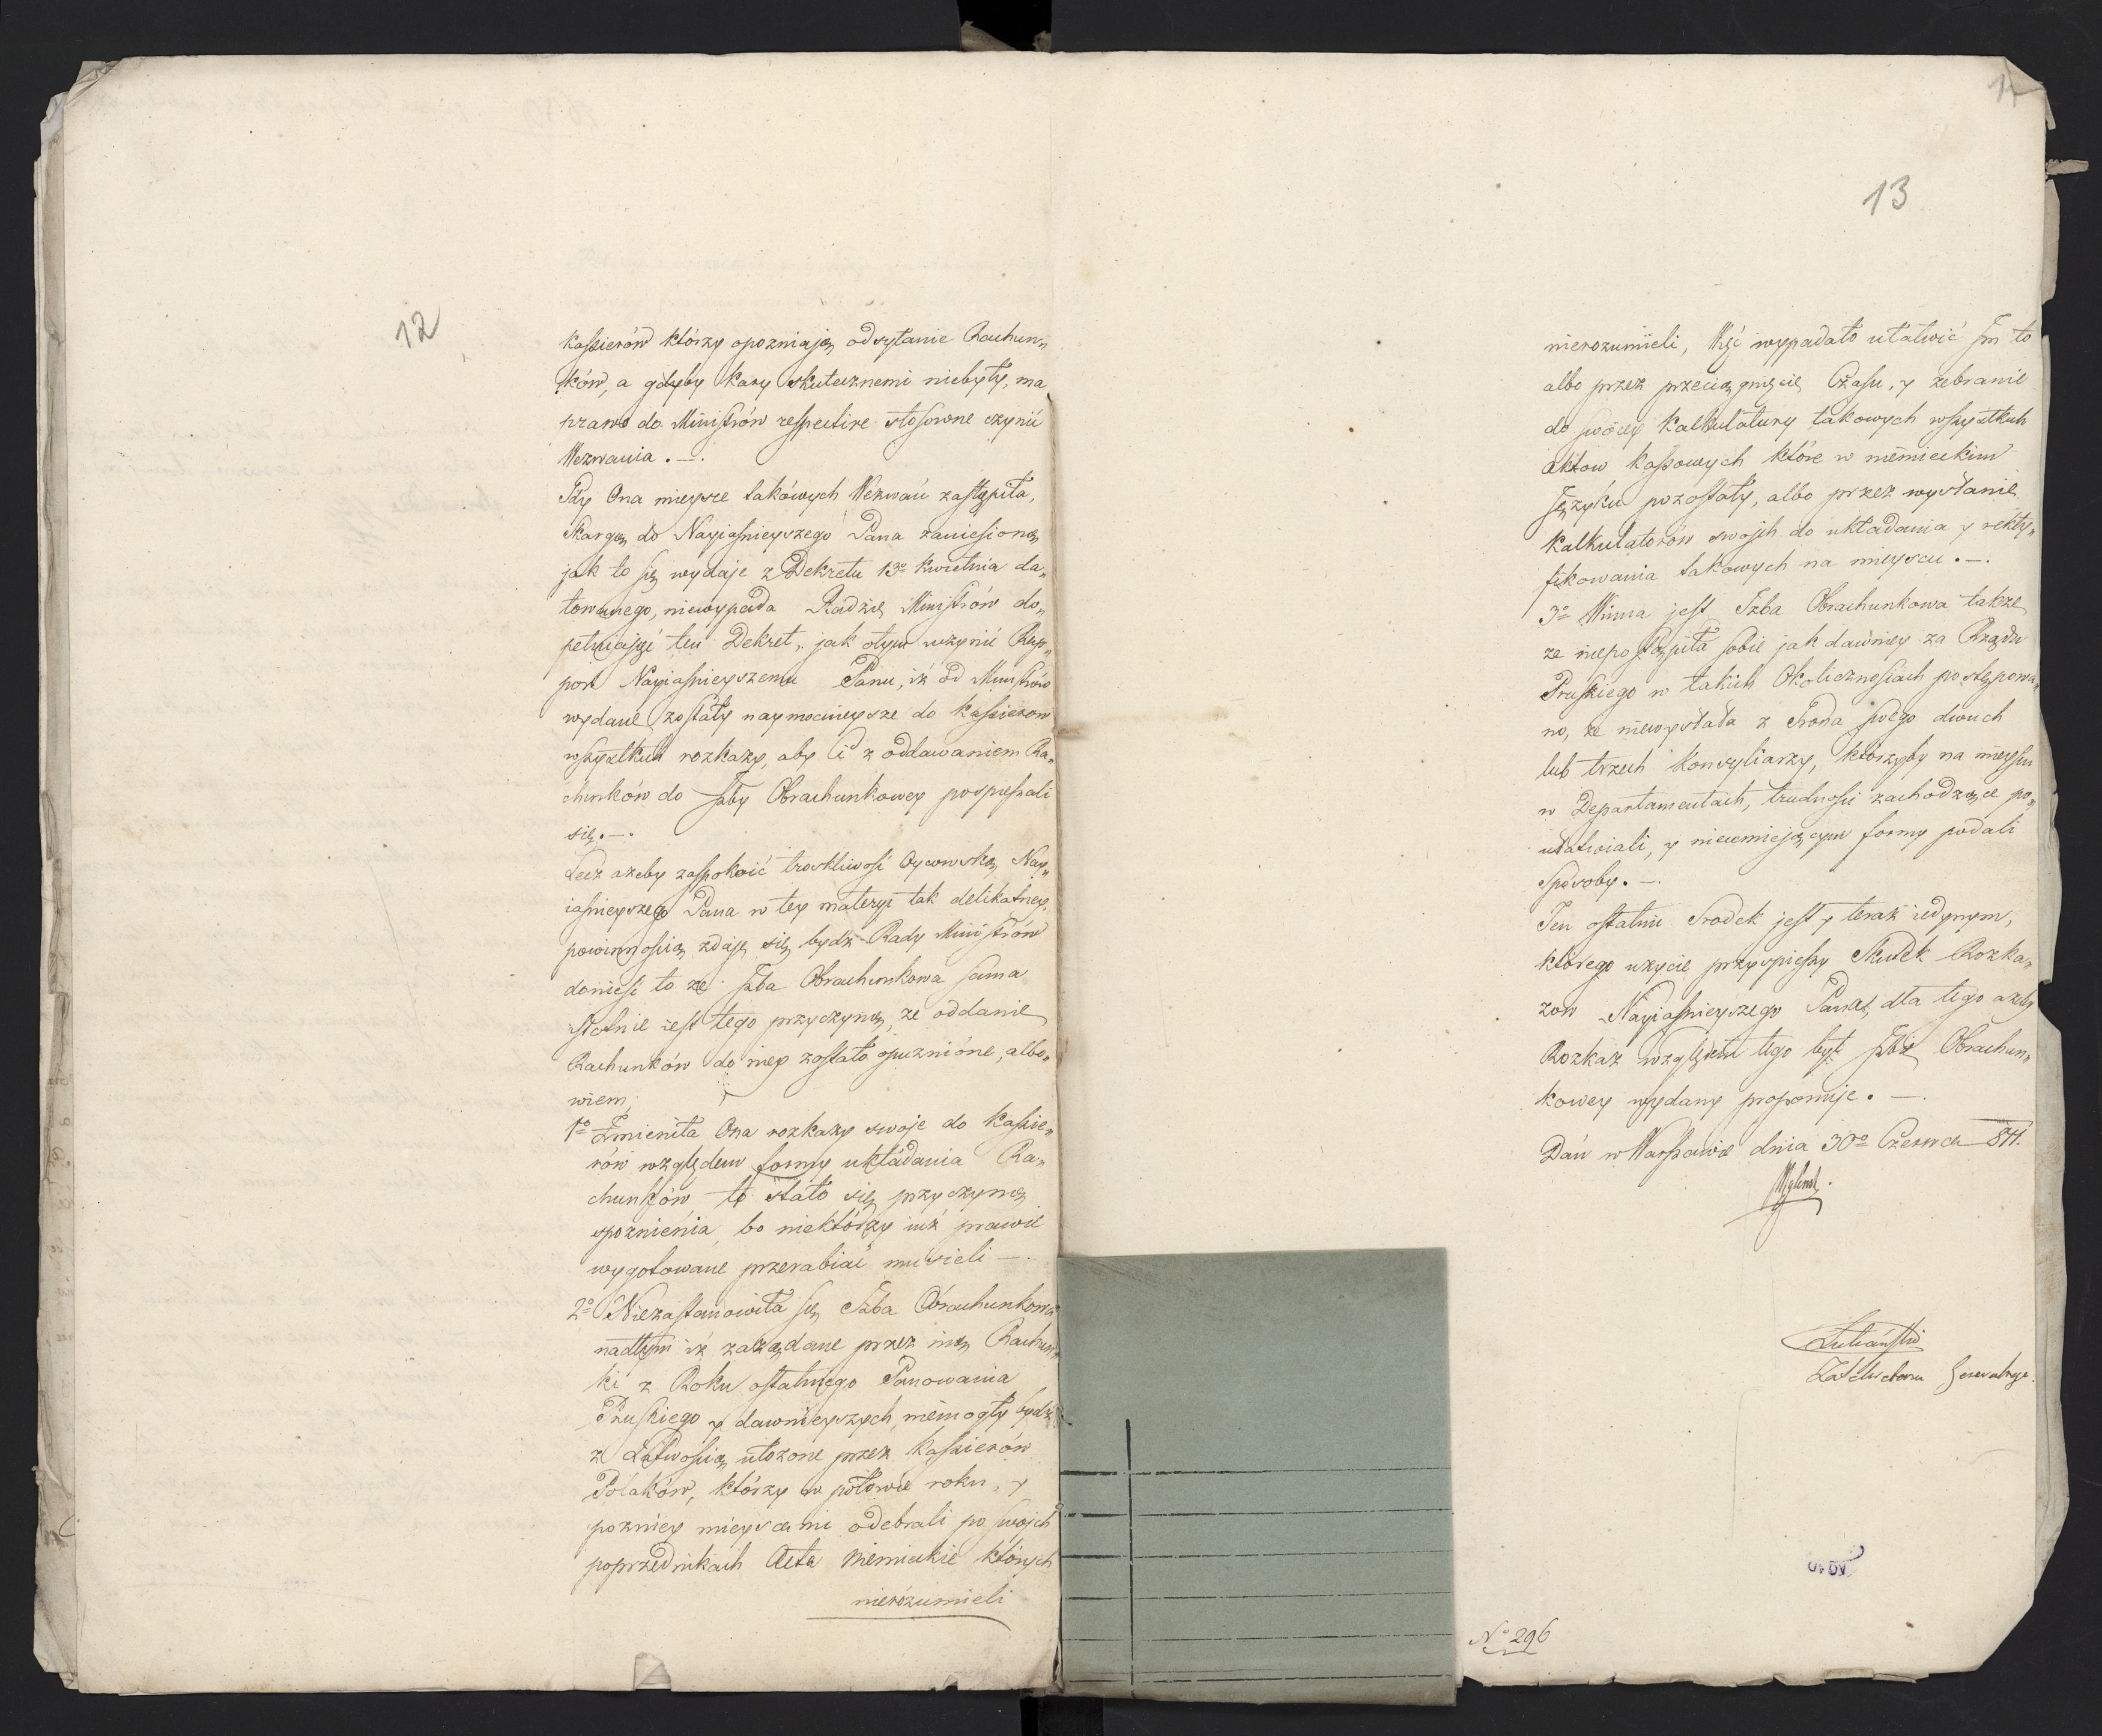 12
kassierów którzy opozniają odsyłanie Rachun„
ków, a gdyby kary skutecznemi niebyły, ma
prawo do Ministrów respective stosowne czynić
Wezwania. —.
Gdy Ona mieysce takówych Wezwań zastąpiła,
Skargą do Nayiasnieyszego Pana zaniesioną
jak to się wydaje z Dekretu 13º Kwietnia da„
towanego, niewypada Radzie Ministrów do„
pełniając ten Dekret, jak otym uczynić Rap„
port Nayiasnieyszemu Panu, iż od Ministrów
wydane zostały naymocnieysze do kassierow
wszystkich rozkazy, aby Ci z oddawaniem Ra„
chunków do Izby Obrachunkowey pospieszali
się. —.
Lecz ażeby zaspokoić troskliwość Oycowską Nay„
iasnieyszego Pana w tey materyi tak delikatney,
powinnością zdaje się bydź Rady Ministrów
donieść to że Izba Obrachunkowa sama
istotnie iest tego przyczyną, że oddanie
Rachunków do niey zostało opuznióne, albo„
wiem,
1º Zmieniła Ona rozkazy swoje do Kassie„
rów względem formy układania Ra„
chunków to stało się przyczyną
spoznienia, bo niektórzy iuż prawie
wygotowane przerabiać musieli —.
2º Niezastanowiła się Izba Obrachunkowa
nadtym iż zażądane przez nią Rachun„
ki z Roku ostatniego Panowania
Pruskiego y dawnieyszych, niemogły bydź
z Łatwością ułozone przez Kassierów
Polaków, którzy w połowie roku, y
pozniey mieyscami odebrali po swoich
poprzednikach Acta Niemieckie których
nierozumieli
14
13
nierozumieli, Więc wypadało ułatwić Im to
albo przez przeciągnięcie Czasu, y zebranie
do swóiey Kalkulatury takowych wszystkich
Aktow kassowych które w niemieckim
Języku pozostały, albo przez wysłanie
Kalkulatorów swoich do układania y rekty„
fikowania takowych na mieyscu. —.
3º Winna jest Izba Obrachunkowa także
ze niepostąpiła sobie jak dawniey za Rządu
Pruskiego w takich Okolicznosciach postępowa„
no, że niewysłała z Grona swego dwuch
lub trzech Konsyliarzy, którzyby na mieyscu
w Departamentach, trudności zachodzące po„
ułatwiali, y nieumiejącym formy podali
Sposoby. —.
Ten ostatni Srodek jest y teraz iedynym,
którego użycie przyspieszy Skutek Rozka„
zow Nayiasnieyszego Pana, dla tego azeby
Rozkaz względem tego był Izbie Obrachun„
kowey wydany proponuje. —.
Dań w Warszawie dnia 30º Czerwca 811.
Nº 296